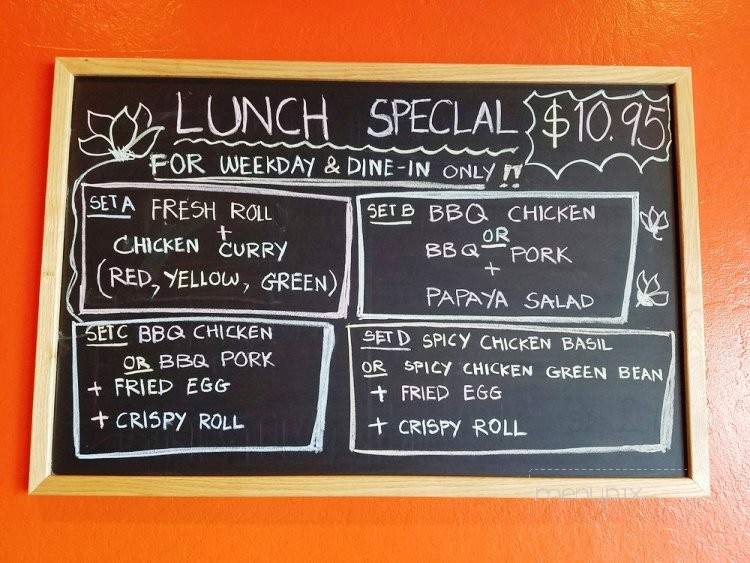 LUNCH SPECLAL $10.95
FOR WEEKDAY & DINE-IN ONLY !!
SET A FRESH ROLL
+
CHICKEN CURRY
(RED, YELLOW, GREEN)
SET B BBQ CHICKEN
OR
BBQ PORK
+
PAPAYA SALAD
SET C BBQ CHICKEN
OR BBQ PORK
+ FRIED EGG
+ CRISPY ROLL
SET D SPICY CHICKEN BASIL
OR SPICY CHICKEN GREEN BEAN
+ FRIED EGG
+ CRISPY ROLL
menupix